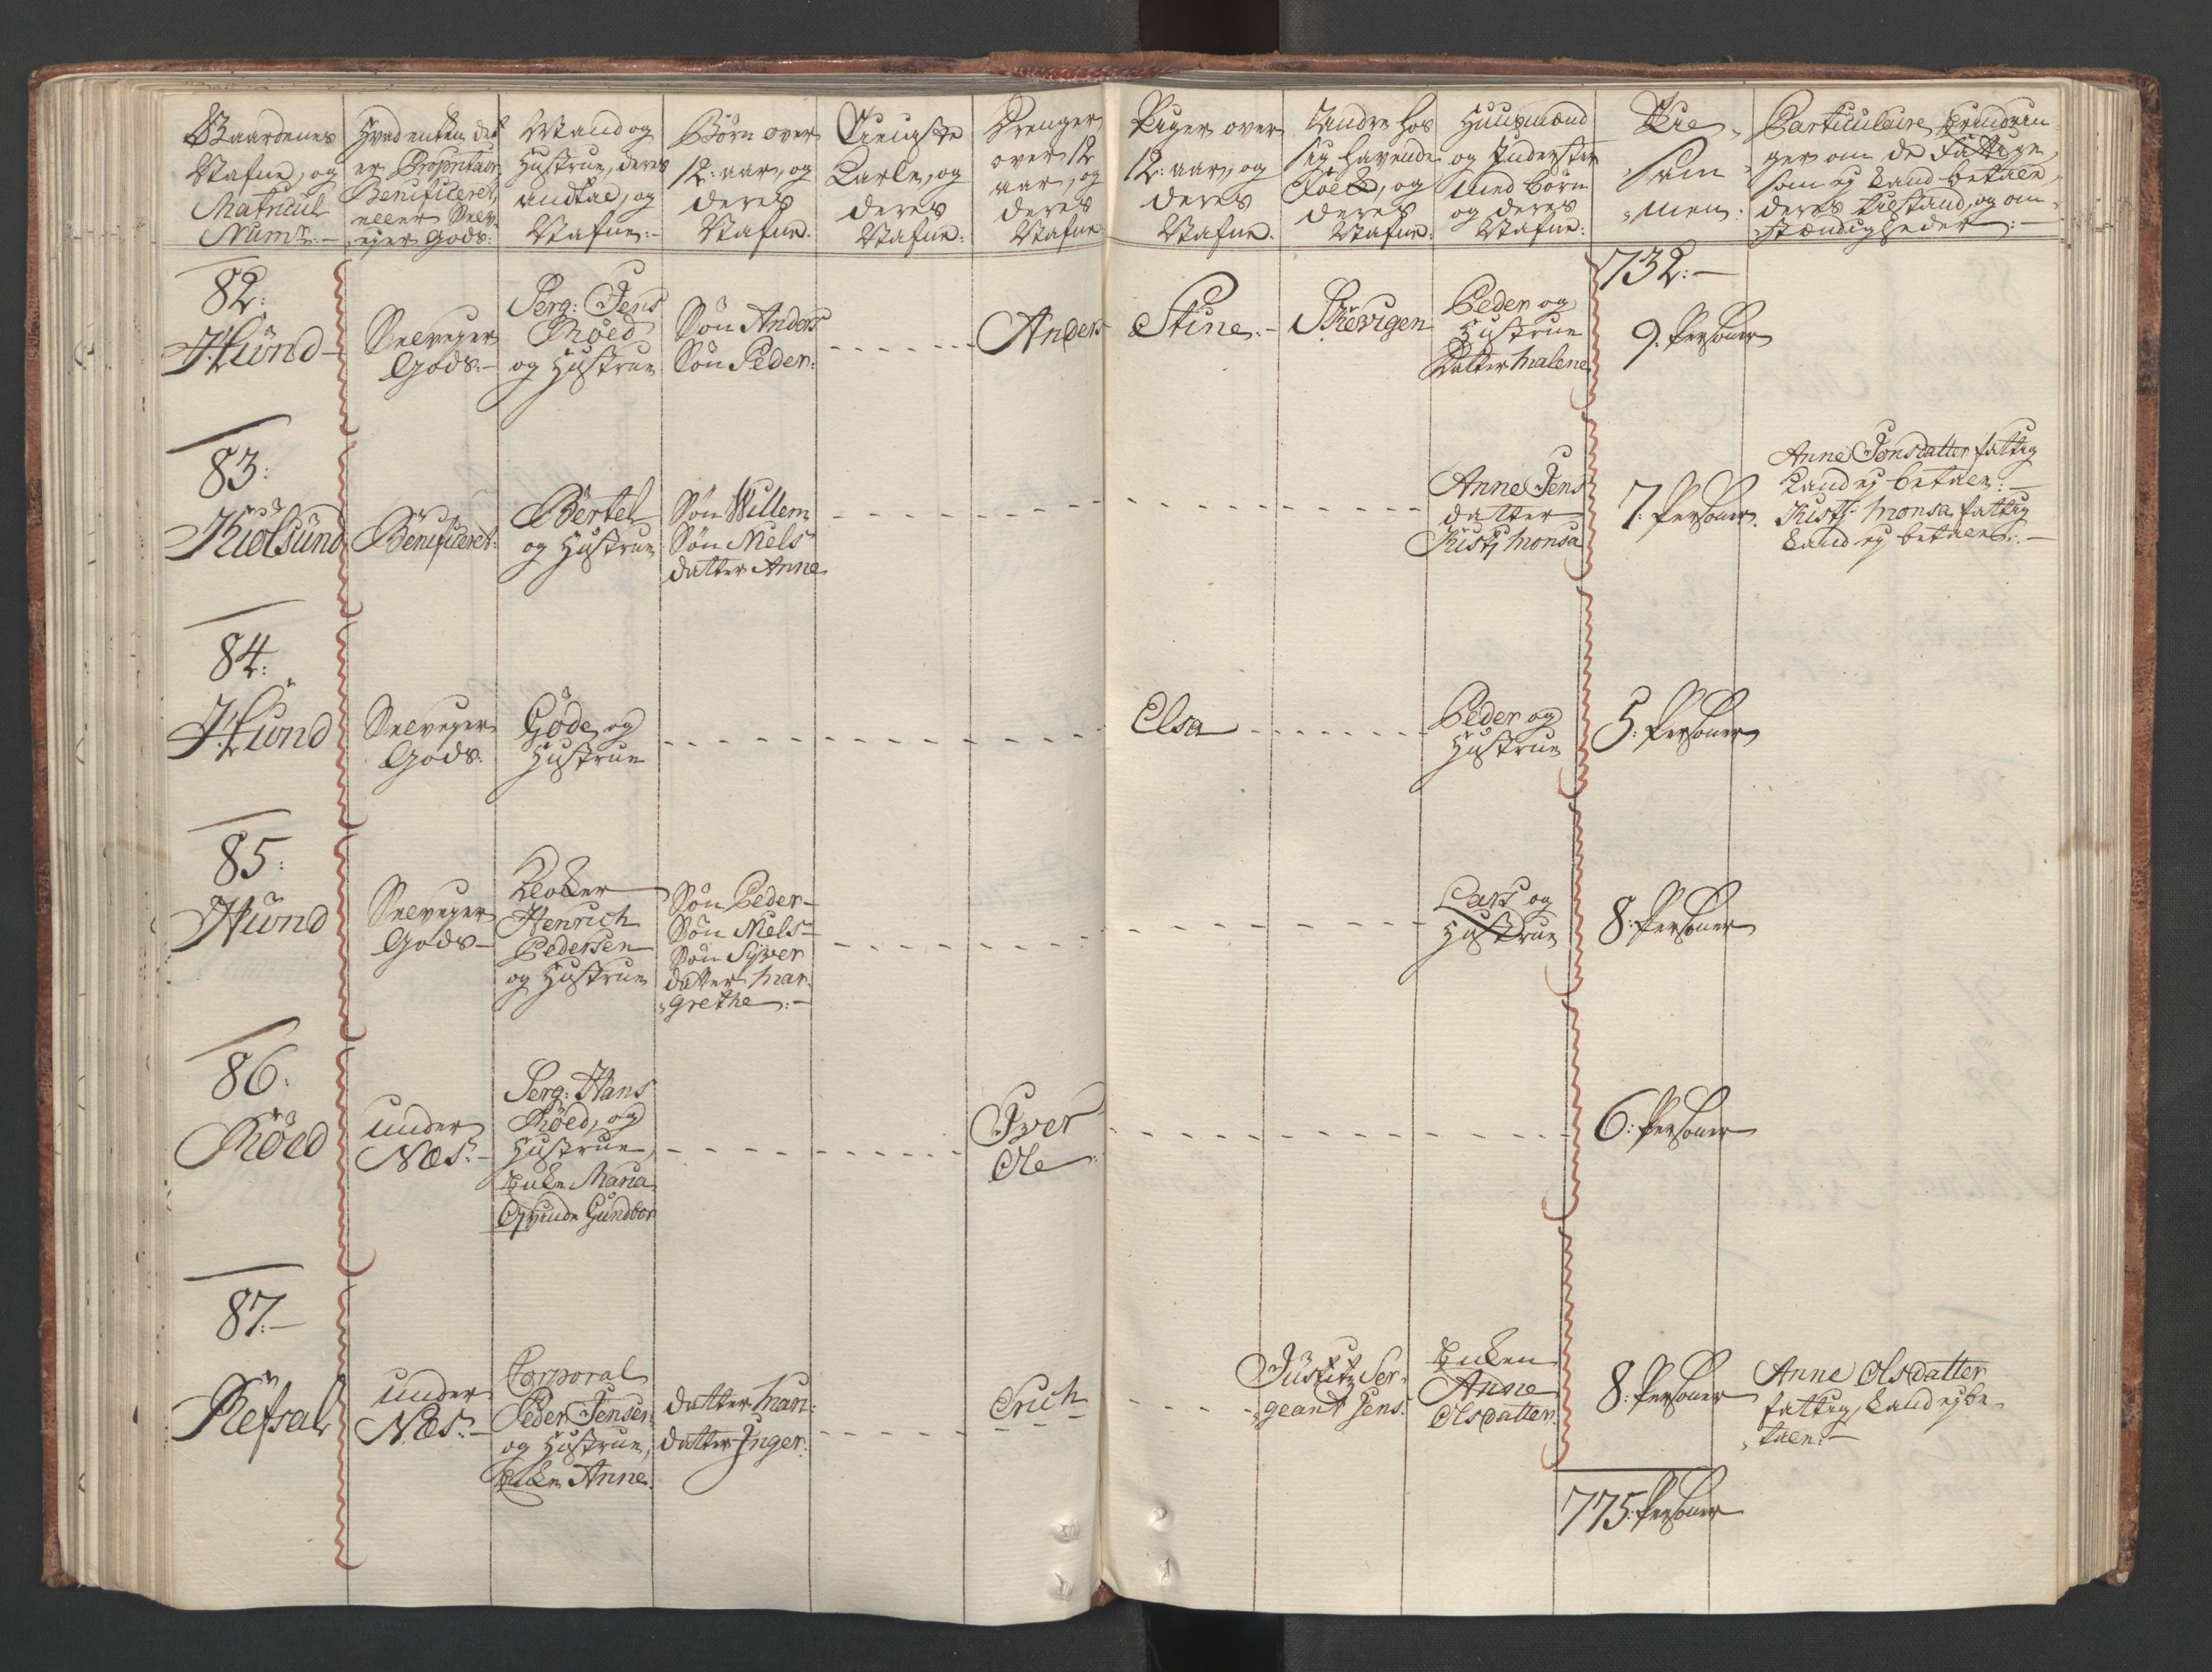 Gaardenes
Nafne, og
Matricul
Numr:
Hvad enten det
er Proprietair
Benificeret,
eller Selv-
ejer Gods:
Mand og
Hustrue, deres
andtal, og
Nafne:
Børn over
12: aar, og
deres
Nafne.
Tieniste
Karle, og
deres
Nafne:
Drenger
over 12
aar, og
deres
Nafne
Piger over
12: aar, og
deres
Nafne.
Andre hos
sig havende
Folk, og
deres
Nafne:
Huusmænd
og Inderster
med børn
og deres
Nafne:
Til-
sam
-men:
Particulaire Erindrin-
ger om de Fattige,
som ej kand betale,
deres tilstand, og om-
stændigheder:
732:
82:
Hünd
Selvejer
Gods:
Serg: Jens
Røed
og Hustrue
Søn Anders
Søn Peder:
Anders
Stine:
Peder og
Hustrue
Datter Malene
9: Personer
83:
Kiølsünd
Benificeret:
Bertel
og Hustrue
Søn Willem
Søn Niels
datter Anne
Anne Jens
datter
Kistj Monsa
7: Personer.
Anne Jensdatter fattig
kand ej betale:
Kistj: Monsa fattig
kand ej betale:
84:
Hünd
Selvejer
Gods:
Gøde, og
Hustrue
Elsa
Peder og
Hustrue
5: Personer
85:
Hünd
Selvejer
Gods
Klokker
Henrich
Pedersen
og Hustrue
Søn Peder
Søn Niels
Søn Syver
datter Mar-
grethe:
Lars og
Hustrue
8: Personer
86:
Røed
under
Næs:
Serg: Hans
Røed, og
Hustrue,
Enke Maria
Qvinde Gundbor
Iver
Ole
6: Personer
87:
Refsal
under
Næs:
Corporal
Peder Jensen
og Hustrue,
Enke Anne.
datter Mari:
datter Inger:
Erich
Justitz Ser-
geant Jens:
Enken
Anne
Olsdatter:
8: Personer
Anne Olsdatter
fattig, kand ej be-
tale:
775: Personer